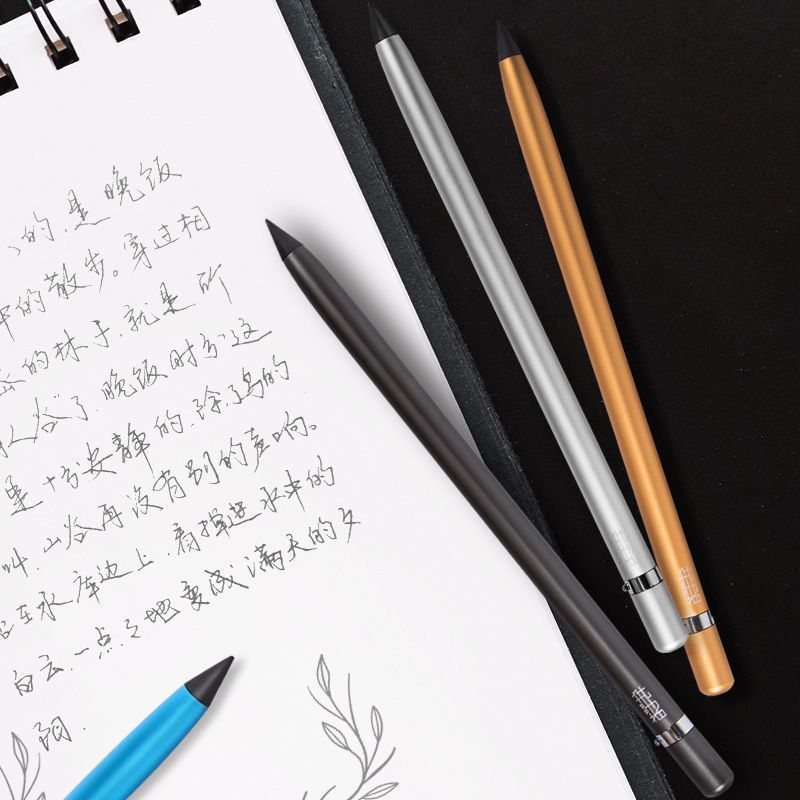 的,是晚饭
的散步。穿过相
的林子,就是所
谷"了.晚饭时分,这
里十分安静的,除了鸟的
叫,山谷再没有别的声响。
在水库边上,看掉进水中的
白云,一点点地变成满天的夕
阳.